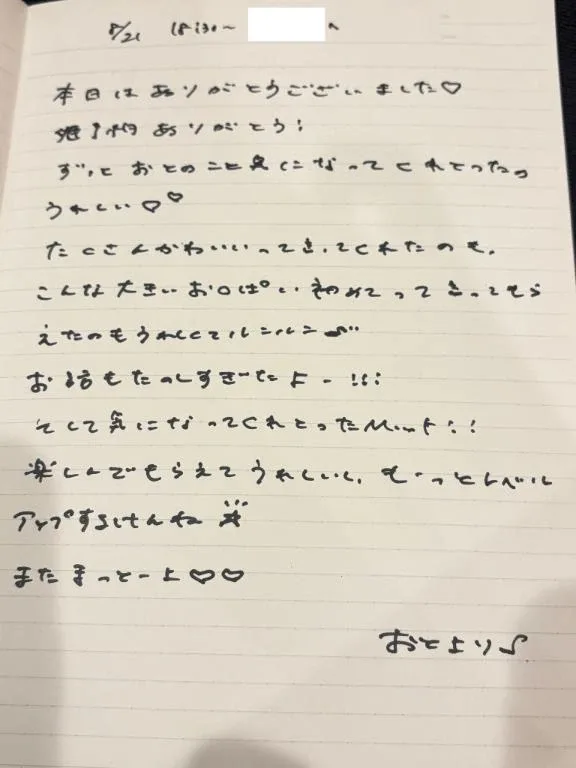 8/21 18:30〜 へ
本日はありがとうございました♡
ありがとう!
ずっとおとのこと気になってくれとったの
うれしい♡♡
たくさんかわいいって言ってくれたのも、
こんな大きいお○ぱい初めてって言ってもら
えたのもうれしくてルンルン♪
お話もたのしすぎたよー!!!
そして気になってくれとったMット!!
楽しんでもらえてうれしいし、もーっとレベル
アップするけんね☆
またまっとーよ♡♡
おとより♪